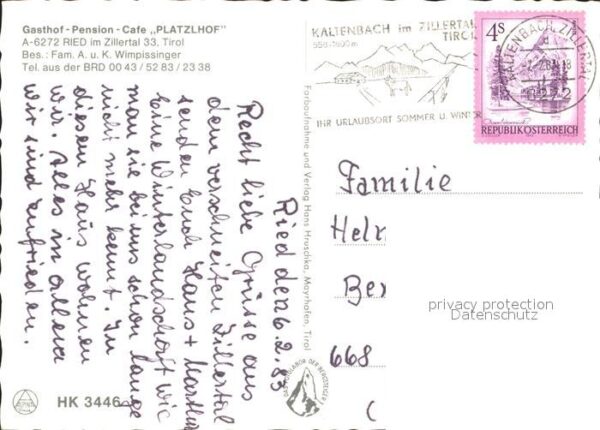 Gasthof - Pension - Cafe „PLATZLHOF"
A-6272 RIED im Zillertal 33, Tirol
Bes.: Fam. A. u. K. Wimpissinger
Tel. aus der BRD 00 43 / 52 83 / 23 38
Ried den 6.2.83
Recht liebe Grüsse aus
dem verschneiten Zillertal
senden Euch Hans +
Eine Winterlandschaft wie
man sie bei uns schon lange
nicht mehr kennt. In
diesem Haus wohnen
wir. Alles in allem
wir sind zufrieden.
HK 3446
Farbaufnahme und Verlag Hans Hruschka, Mayrhofen, Tirol
KALTENBACH im ZILLERTAL
TIROL
IHR URLAUBSORT SOMMER U. WINTER
KALTENBACH, ZILLERTAL
4S
REPUBLIK ÖSTERREICH
Familie
Helr
Ber
668
privacy protection
Datenschutz